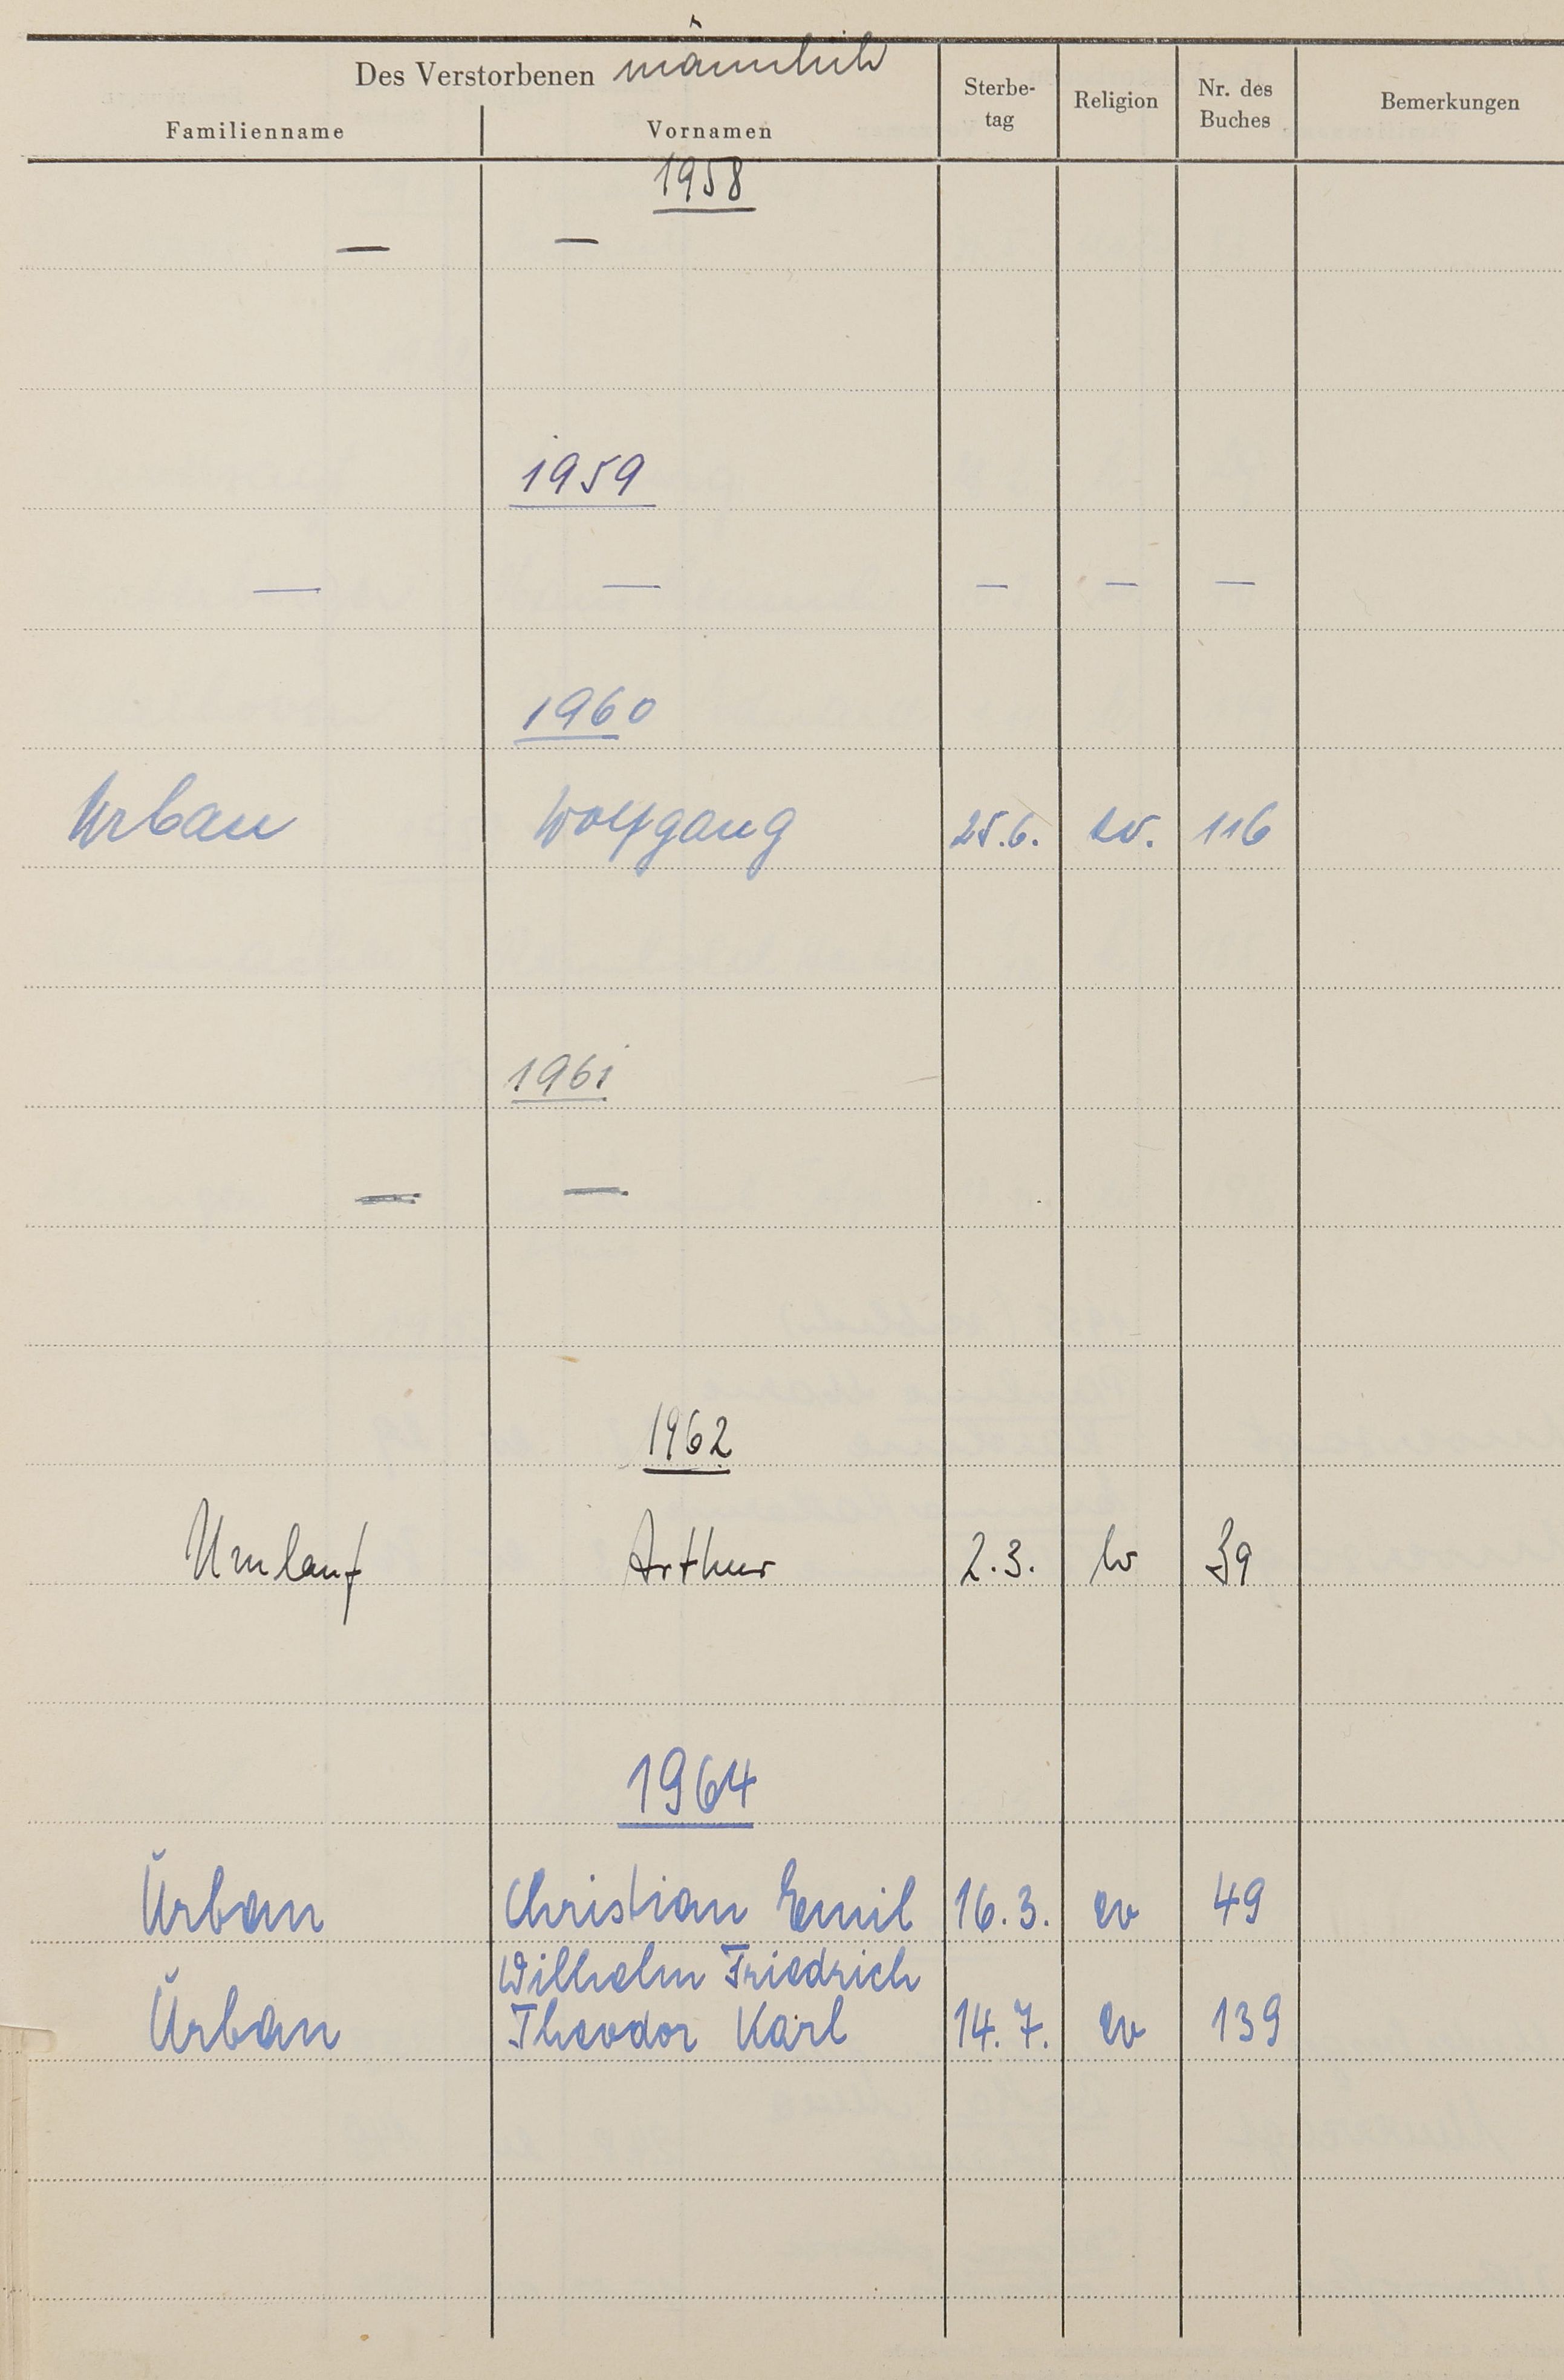 Des Verstorbenen männlich
Familienname Vornamen Sterbe-tag Religion Nr. des Buches Bemerkungen
1958
— —
1959
— — — — —
1960
Urban Wolfgang 25.6. ev. 116
1961
— —
1962
Umlauf Arthur 2.3. ev 39
1964
Urban Christian Emil 16.3. ev 49
Wilhelm Friedrich
Urban Theodor Karl 14.7. ev 139